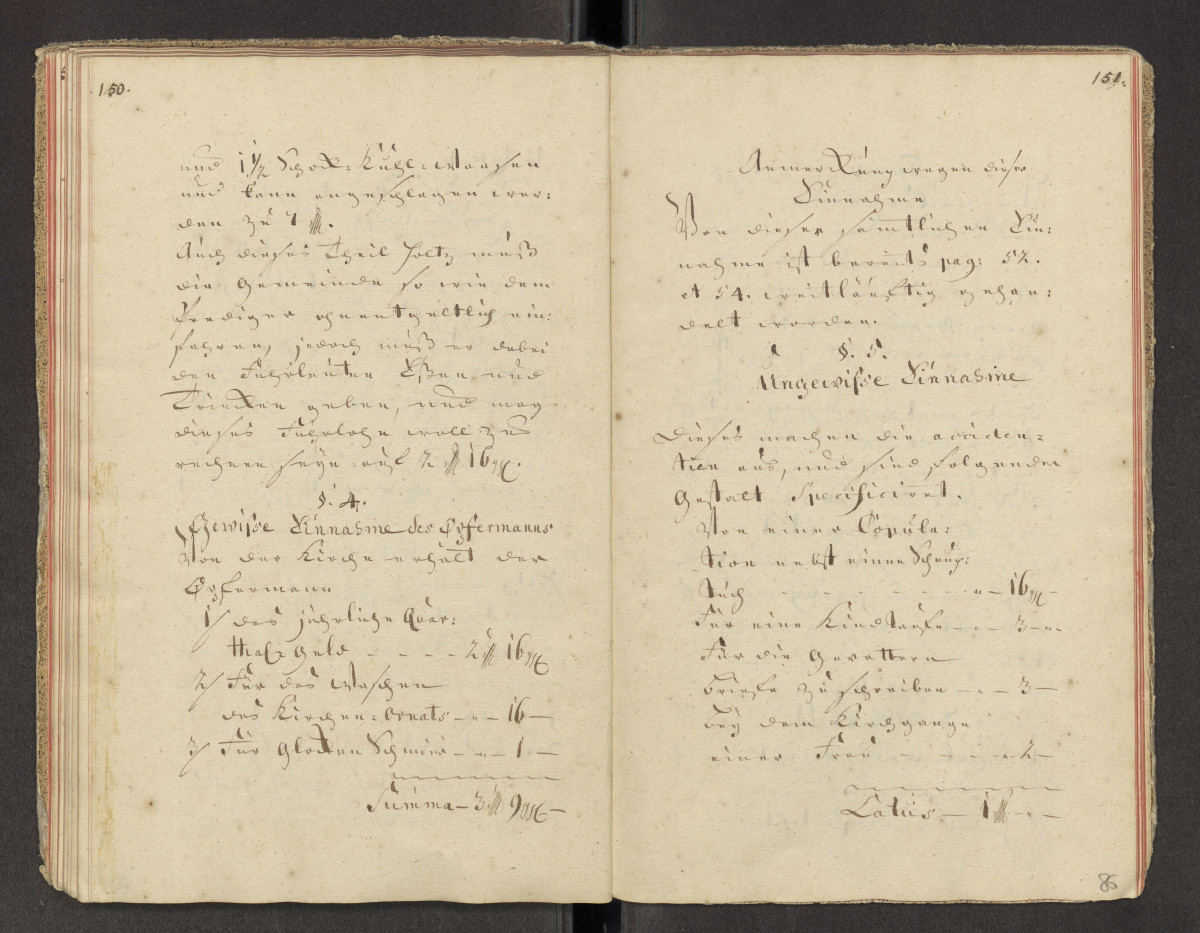 150.
und 1 1/2 Schock: Kuhl: Waasen
und kann angeschlagen wer:
den zu 4 rthl.
Auch dieses Theil Holtz muß
die Gemeinde so wie dem
Prediger ohnentgeltlich ein:
fahren, jedoch muß er dabei
den Fuhrleuten Eßen und
Trincken geben, und mag
dieses Fuhrlohn woll zu
rechnen seyn auf 2 rthl 16 ggl.
§. 4.
Gewisse Einnahme des Opfermanns
Von der Kirche erhält der
Opfermann
1/ das jährliche Quar:
thal Geld - - - - 2 rthl 16 ggl
2/ Für das Waschen
des Kirchen: Ornats - " - 16 -
3/ Für Glocken Schmier - " - 1 -
Summa - 3 rthl 9 ggl -
151.
Anmerckung wegen dieser
Einnahme
Von dieser sämtlichen Ein:
nahme ist bereits pag: 52.
et 54. weitläuftig gehan:
delt worden.
§. 5.
Ungewisse Einnahme
Dieses machen die acciden:
tien aus, und sind folgender
Gestalt Specificiret.
Von einer Copula:
tion nebst einen Schnup:
tuch - - - - - - " - 16 ggl -
Für eine Kindtaufe - " - 3 - " -
Für die Gevattern
briefe zu schreiben - " - 3 -
bey dem Kirchgange
einer Frau - - - - " - 2 -
Latus - 1 rthl - " -
86